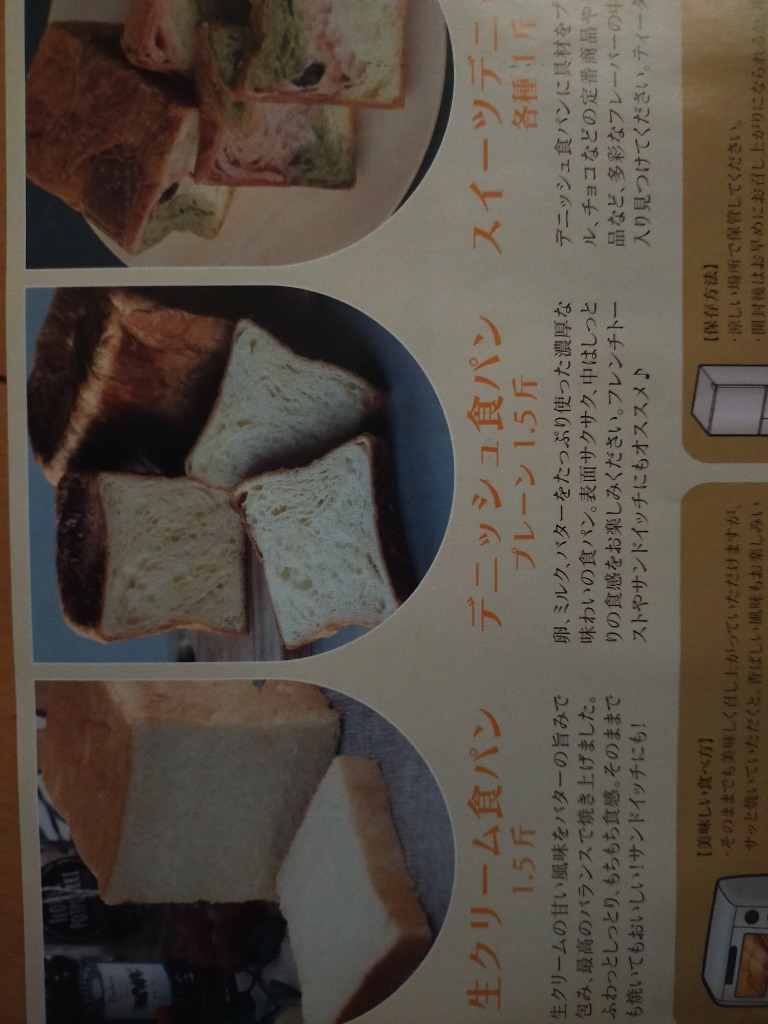 生クリーム食パン
1.5斤
生クリームの甘い風味をバターの旨みで
包み、最高のバランスで焼き上げました。
ふわっとしっとり、もちもち食感。そのままで
も焼いてもおいしい!サンドイッチにも!
デニッシュ食パン
プレーン 1.5斤
卵、ミルク、バターをたっぷり使った濃厚な
味わいの食パン。表面サクサク、中はしっと
りの食感をお楽しみください。フレンチトー
ストやサンドイッチにもオススメ♪
スイーツデニ
各種 1斤
デニッシュ食パンに具材をプ
ル、チョコなどの定番商品や
品など、多彩なフレーバーの中
入り見つけてください。ティータ
【美味しい食べ方】
・そのままでも美味しく召し上がっていただけますが、
サッと焼いていただくと、香ばしい風味もお楽しみい
【保存方法】
・涼しい場所で保管してください。
・開封後はお早めにお召し上がりになられるか、